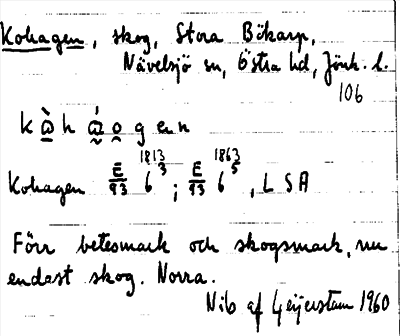 Kohagen, skog, Stora Bökarp,
Nävelsjö sn, Östra hd, Jönk. l.
106
kὼh ά̰ o̤ g e n
1813 1863
Kohagen E/93 6 3 ; E/93 6 5 , LSA
Förr betesmark och skogsmark, nu
endast skog. Norra.
Nils af Geijerstam 1960